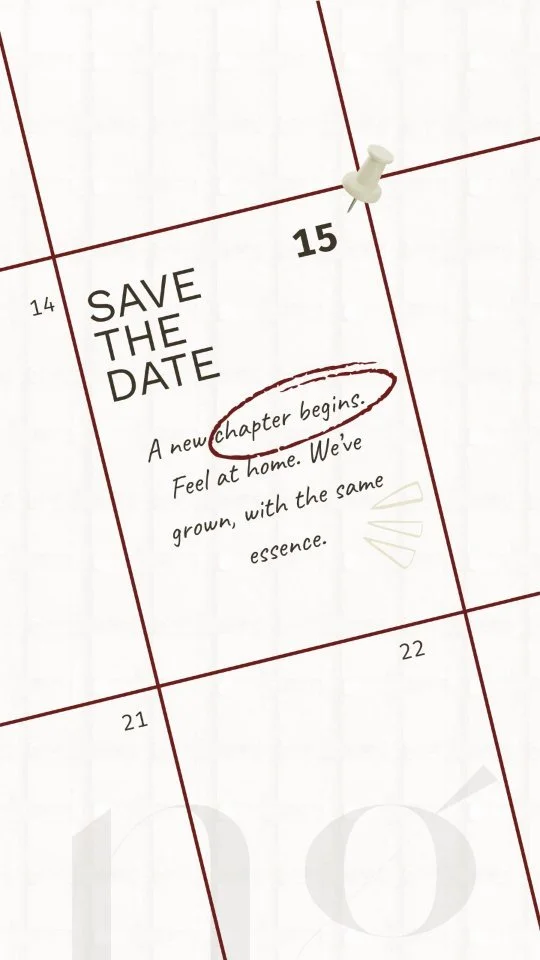 15
14
SAVE
THE
DATE
A new chapter begins.
Feel at home. We've
grown, with the same
essence.
22
21
ng